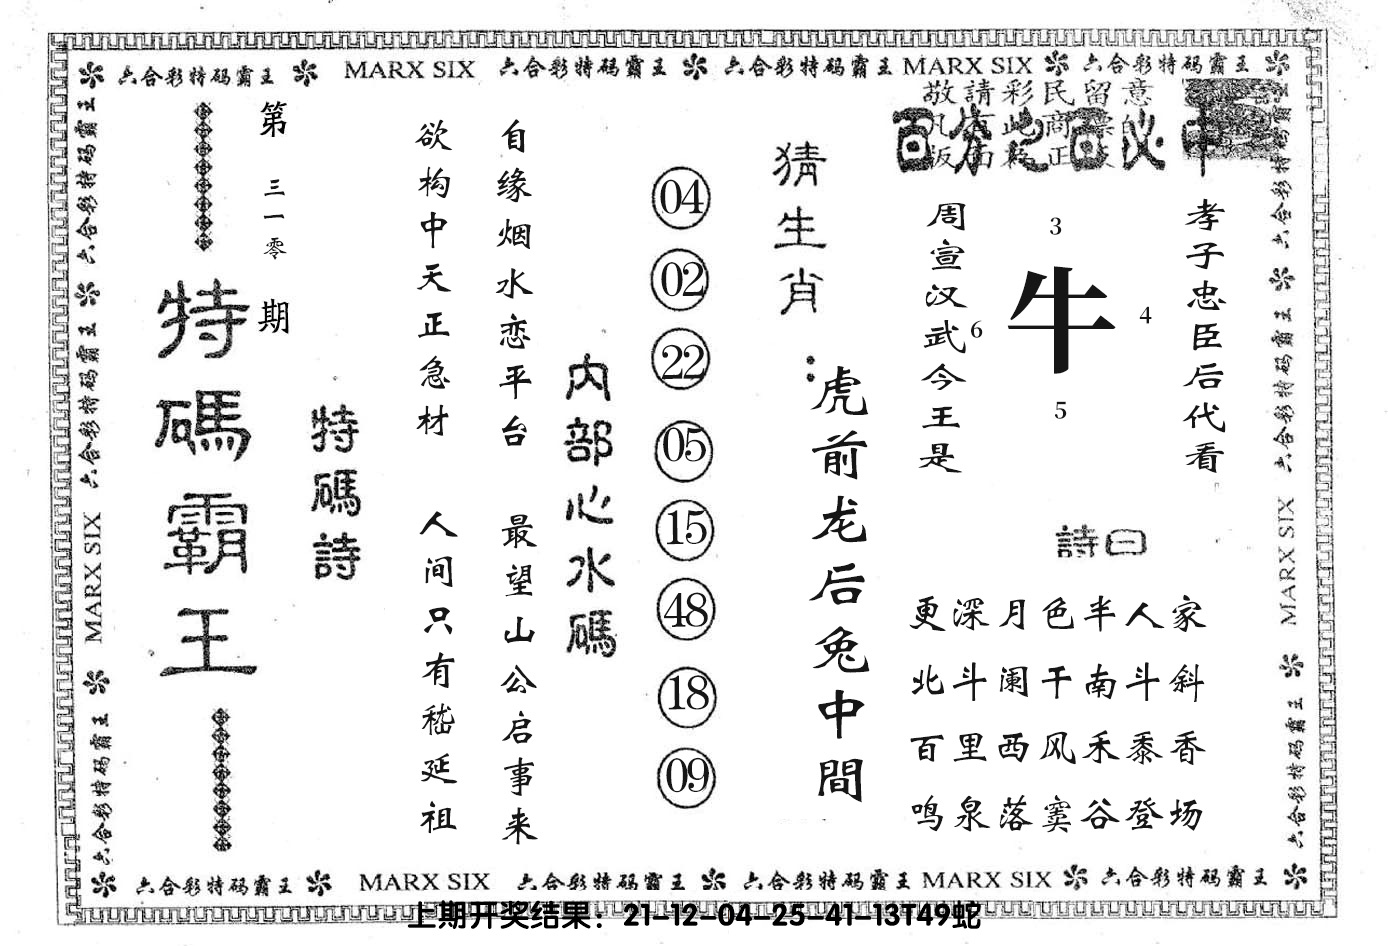 六合彩特码霸王 MARX SIX 六合彩特码霸王 六合彩特码霸王 MARX SIX 六合彩特码霸王
敬請彩民留意
百分之百必中
孝子忠臣后代看
周宣汉武今王是
3
牛
6
4
5
詩曰
更深月色半人家
北斗阑干南斗斜
百里西风禾黍香
鸣泉落窦谷登场
猜生肖：
虎前龙后兔中間
04
02
22
05
15
48
18
09
内部心水碼
自缘烟水恋平台
最望山公启事来
欲构中天正急材
人间只有嵇延祖
特碼詩
第三一零期
特碼霸王
六合彩特码霸王 六合彩特码霸王 MARX SIX 六合彩特码霸王
六合彩特码霸王 六合彩特码霸王 MARX SIX 六合彩特码霸王
六合彩特码霸王 MARX SIX 六合彩特码霸王 六合彩特码霸王 MARX SIX 六合彩特码霸王
上期开奖结果：21-12-04-25-41-13T49蛇